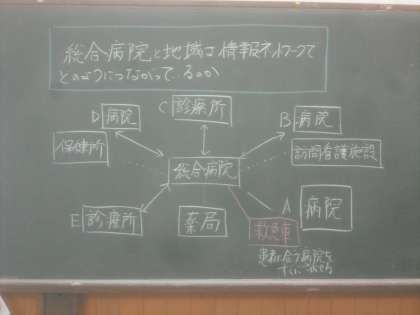 総合病院と地域は情報ネットワークで
どのようにつながっているのか
C 診療所
D 病院
B 病院
保健所
訪問看護施設
総合病院
A 病院
E 診療所
薬局
救急車
患者に合う病院を